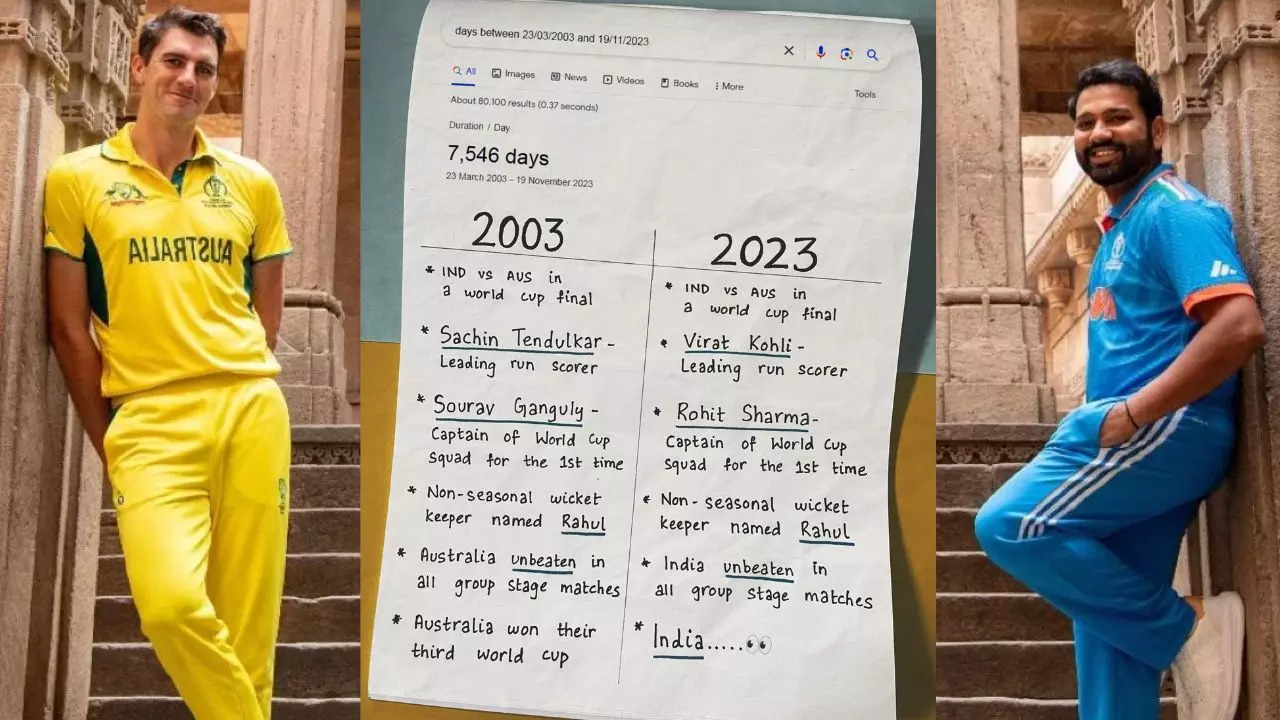 AUSTRALIA
days between 23/03/2003 and 19/11/2023
All Images News Videos Books More Tools
About 80,100 results (0.37 seconds)
Duration / Day
7,546 days
23 March 2003 – 19 November 2023
2003
* IND vs AUS in
a world cup final
* Sachin Tendulkar -
Leading run scorer
* Sourav Ganguly -
Captain of World Cup
squad for the 1st time
* Non-seasonal wicket
keeper named Rahul
* Australia unbeaten in
all group stage matches
* Australia won their
third world cup
2023
* IND vs AUS in
a world cup final
* Virat Kohli -
Leading run scorer
* Rohit Sharma-
Captain of World Cup
squad for the 1st time
* Non-seasonal wicket
keeper named Rahul
* India unbeaten in
all group stage matches
* India.....👀